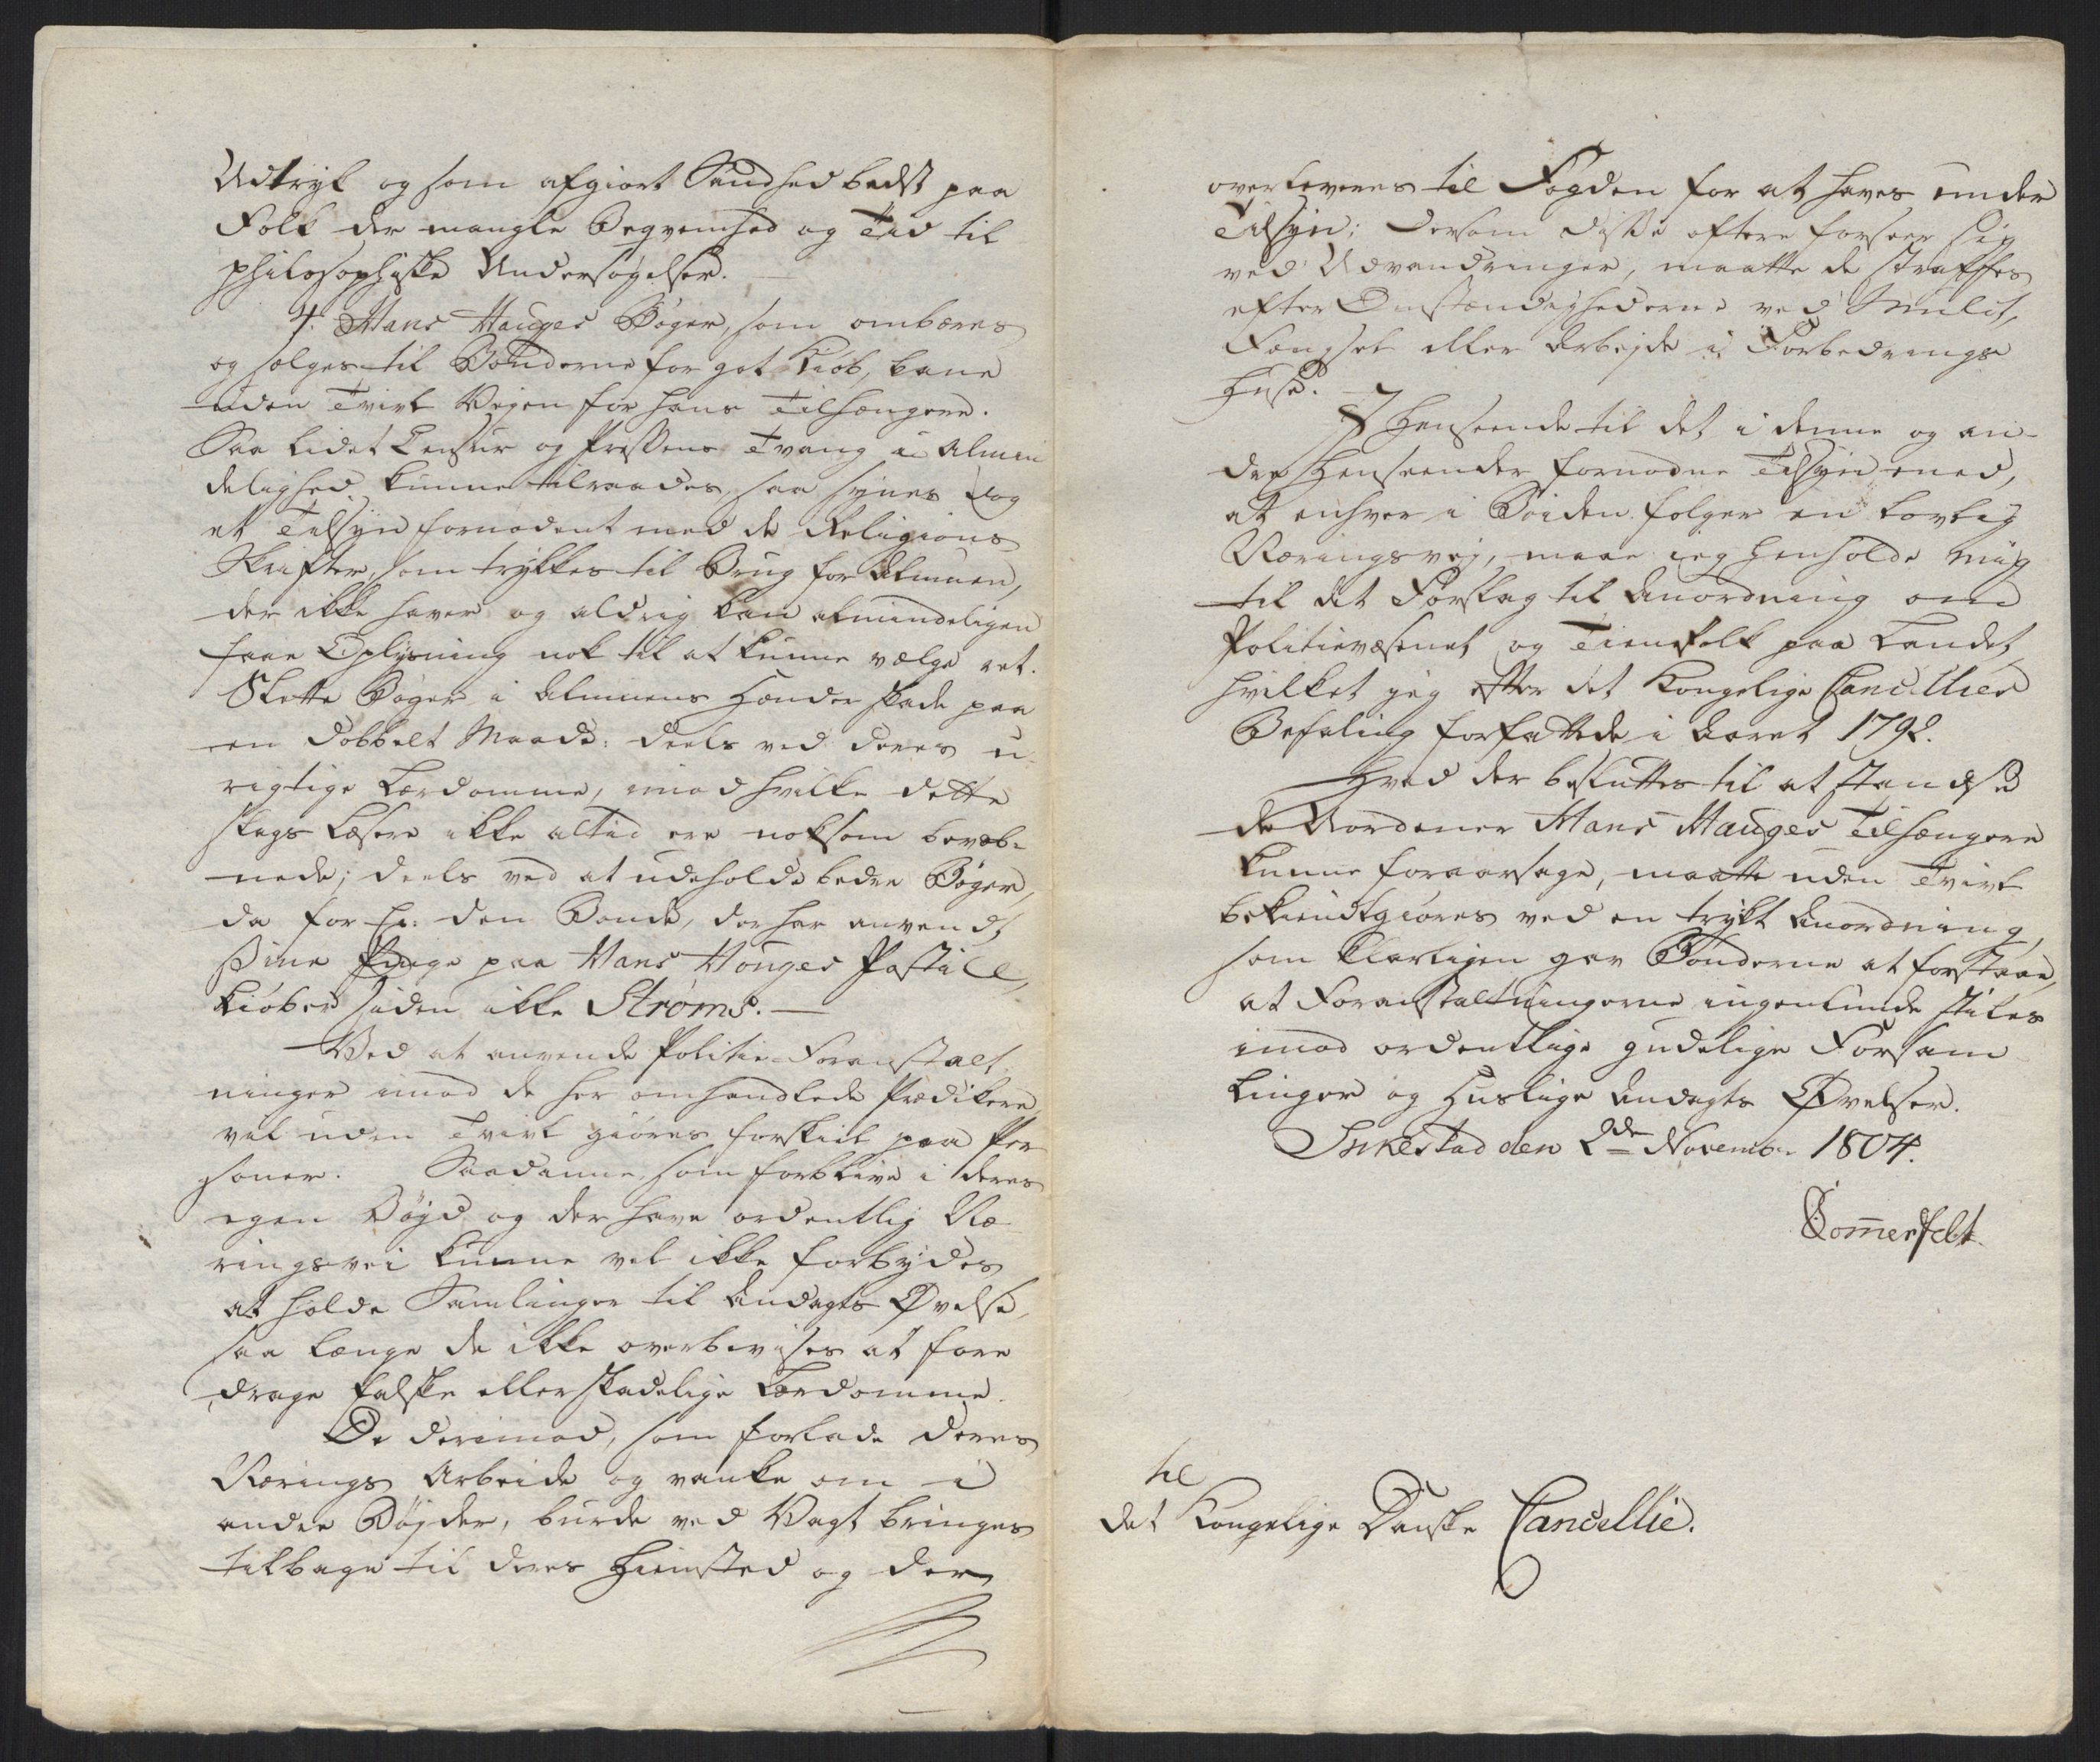 Udtryk og som afgiort Sandhed bedst paa
Folk der mangle Beqvemhed og Tid til
philosophiske Undersøgelser. —
4. Hans Hauges Bøger, som ombæres
og sælges til Bønderne for got Kiøb, bane
uden Tvivl Veien for hans Tilhængere.
Saa lidet Censur og Pressens Tvang i Almin
delighed kunne tilraades, saa synes dog
et Tilsyn fornødent med de Religions
Skrifter, som trykkes til Brug for Almuen,
der ikke haver og aldrig kan almindeligen
faae Oplysning nok til at kunne vælge ret.
Slette Bøger i Almuens Hænder skade paa
en dobbelt Maade: deels ved deres u-
rigtige Lærdomme, imod hvilke dette
slags Læsere ikke altid ere noksom bevæb-
nede; deels ved at udeholde bedre Bøger,
da for Ex: den Bonde, der har anvendt
sine Penge paa Hans Houges Postill,
kiøber siden ikke Strøms. —
Ved at anvende Politie-Foranstalt
ninger imod de her omhandlede Prædikere,
vil uden Tvivl giøres forskiel paa Per
soner. Saadanne som forblive i deres
egen Bøyd og der have ordentlig Næ-
ringsvei kunne vel ikke forbydes
at holde Samlinger til Andagts Øvelse,
saa længe de ikke overbevises at fore
drage falske eller skadelige Lærdomme.
De derimod, som forlade deres
Nærings Arbeide og vanke om i
andre Bøjder, burde ved Vagt bringes
tilbage til deres Hiemsted og der
overleveres til Fogden for at haves under
Tilsyn; dersom disse oftere forseer sig
ved Udvandringer, maatte de straffes
efter Omstændighederne ved Mulct,
Fængsel eller Arbejde i Forbedrings
Huse. —
I Henseende til det i denne og an-
dre Henseender fornødne Tilsyn med,
at enhver i Bøiden følger en lovlig
Næringsvej, maae ieg henholde mig
til det Forslag til Anordning om
Politievæsenet og Tienstfolk paa Landet,
hvilket jeg efter det Kongelige Cancellies
Befaling forfattede i Aaret 1792.
Hvad der besluttes til at standse
de Uordener Hans Hauges Tilhængere
kunne foraarsage, maatte uden Tvivl
bekiendtgiøres ved en trykt Anordning,
som klarligen gav Bønderne at forstaae,
at Foranstaltningerne ingenlunde stiles
imod ordentlige gudelige Forsam
linger og Huslige Andagts Øvelser.
Inkestad den 2de Novemb: 1804.
Sommerfelt.
til
det Kongelige Danske Cancellie.